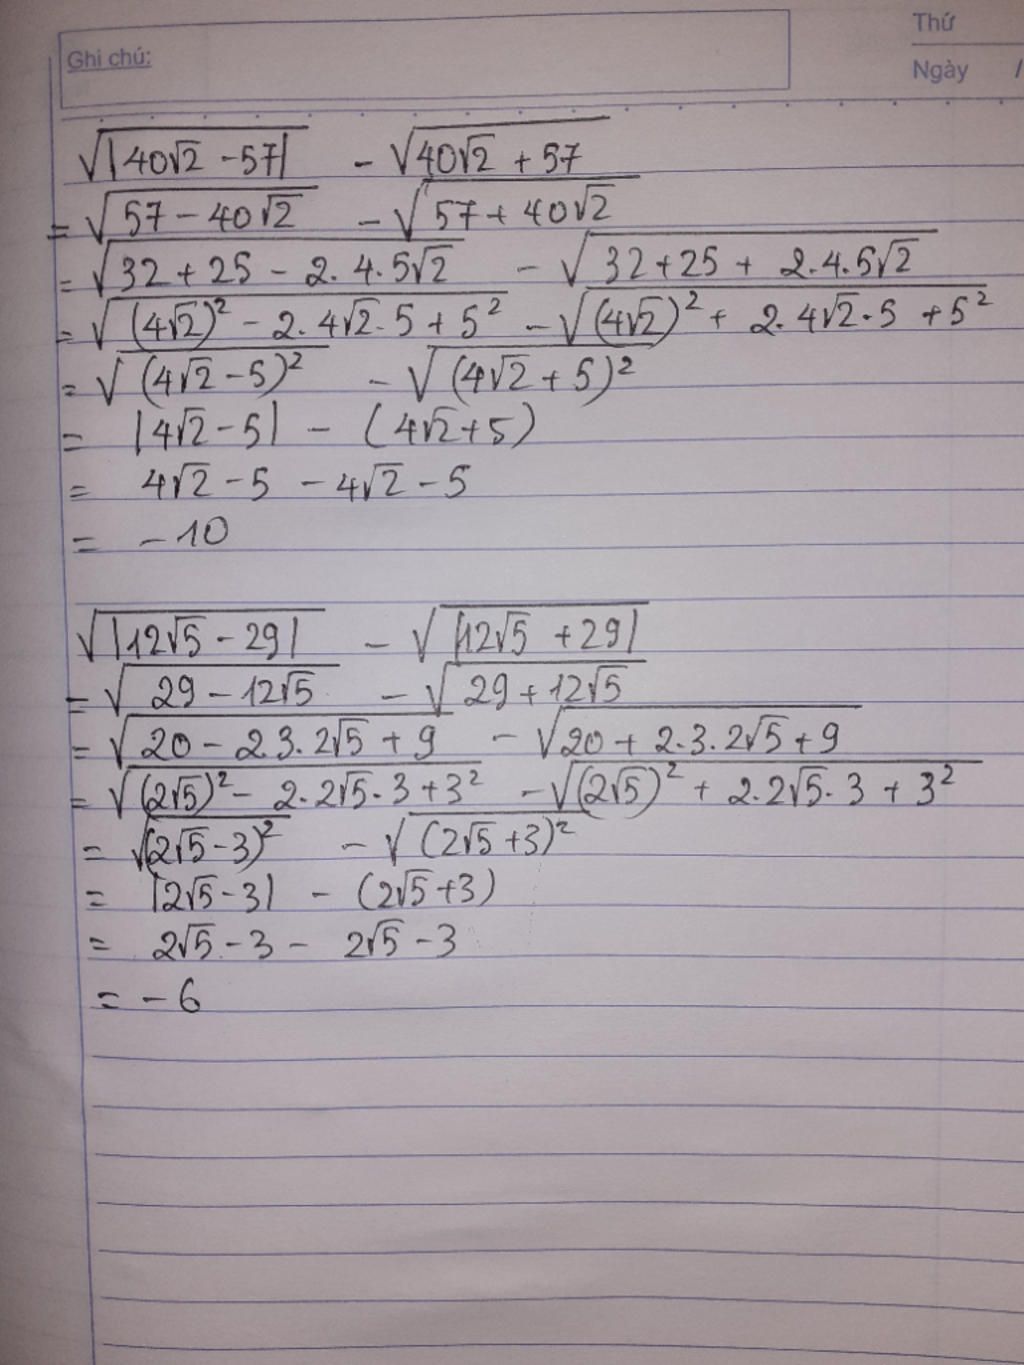 Ghi chú:
Thứ
Ngày /
√|40√2 - 57| - √40√2 + 57
= √57 - 40√2 - √57 + 40√2
= √32 + 25 - 2.4.5√2 - √32 + 25 + 2.4.5√2
= √(4√2)² - 2.4√2.5 + 5² - √(4√2)² + 2.4√2.5 + 5²
= √(4√2 - 5)² - √(4√2 + 5)²
= |4√2 - 5| - (4√2 + 5)
= 4√2 - 5 - 4√2 - 5
= -10
√|12√5 - 29| - √|12√5 + 29|
= √29 - 12√5 - √29 + 12√5
= √20 - 2.3.2√5 + 9 - √20 + 2.3.2√5 + 9
= √(2√5)² - 2.2√5.3 + 3² - √(2√5)² + 2.2√5.3 + 3²
= √(2√5 - 3)² - √(2√5 + 3)²
= |2√5 - 3| - (2√5 + 3)
= 2√5 - 3 - 2√5 - 3
= -6